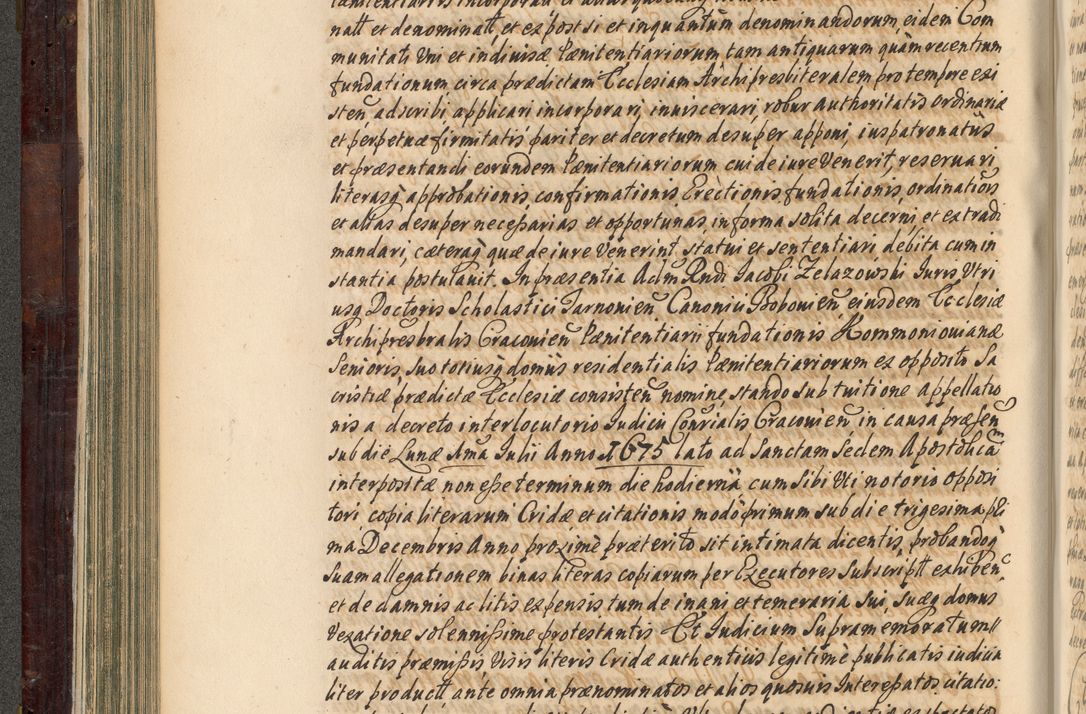 natt et denominatt, et ex post si et inquantum denominandorum, eidem Com
munitati Uni et indivisæ Pænitentiariorum tam antiquarum quàm recentium
fundationum circa prædictam Ecclesiam Archipresbiteralem pro tempore exi
steñ, adscribi, applicari incorporari, inviscerari, robur authoritatis ordinariæ
et perpetuæ firmitatis pariter et decretum desuper apponi, iuspatronatûs
et præsentandi eorundem Pænitentiariorum cui de iure Venerit, reservari,
literasq̃ approbationis, confirmationis Erectionis, fundationis, ordinationis
et alias desuper neceßarias et opportunas, in forma solita decerni, et extradi
mandari, cæteraq̃ quæ de iure Venerint, statui et sententiari, debita cum in
stantia postulavit. In præsentia Adm Rndi Jacobi Zelazowski Iuris Utri
usq Doctoris Scholastici Tarnovieñ Canonici Bobovieñ eiusdem Ecclesiæ
Archipresbralis Cracovieñ Pænitentiarii fundationis Kommoniovianæ
Senioris, suo totiusq̃ domûs residentialis Pænitentiariorum ex opposito Sa
cristiæ prædictæ Ecclesiæ consisteñ nomine, stando sub tuitione appellatio
nis a decreto interlocutorio Iudicii Conrialis Cracovieñ in causa præseñ
sub die Lunæ 1ma Iulii Anno 1675 lato ad Sanctam Sedem Apostolicã
interpositæ non eße terminum die hodiernâ cum sibi Uti notorio opposi
tori copia literarum Cridæ et citationis modò primum sub die trigesima pri
ma Decembris Anno proximè præterito sit intimata dicentis, probandoq̃
suam allegationem binas literas copiarum per Executores subscriptt exhibeñ
et de damnis ac litis expensis tum de inani et temeraria sui, suæq domus
Vexatione solennißime protestantis Et Iudicium supramemoratum
auditis præmißis Visis literis Cridæ authenticis legitimè publicatis iudicia
liter productt ante omnia prænominatos et alios quosvis Intereßatos citatio: